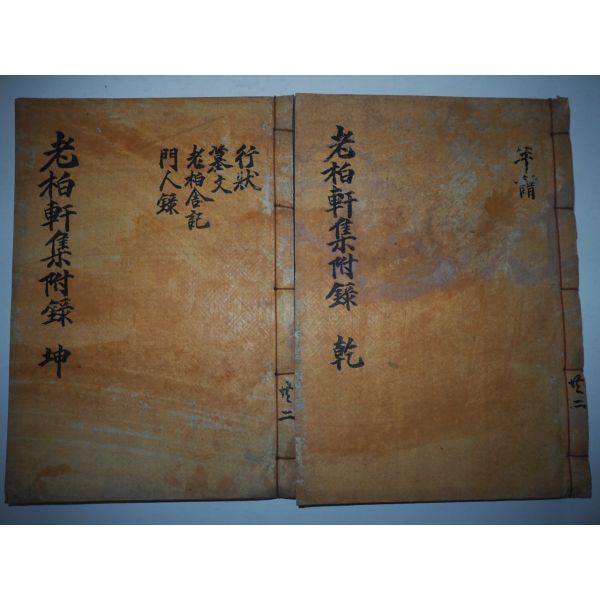 老柏軒集附錄 乾
老柏軒集附錄 坤
行狀
墓文
老柏舍記
門人錄
共二
共二